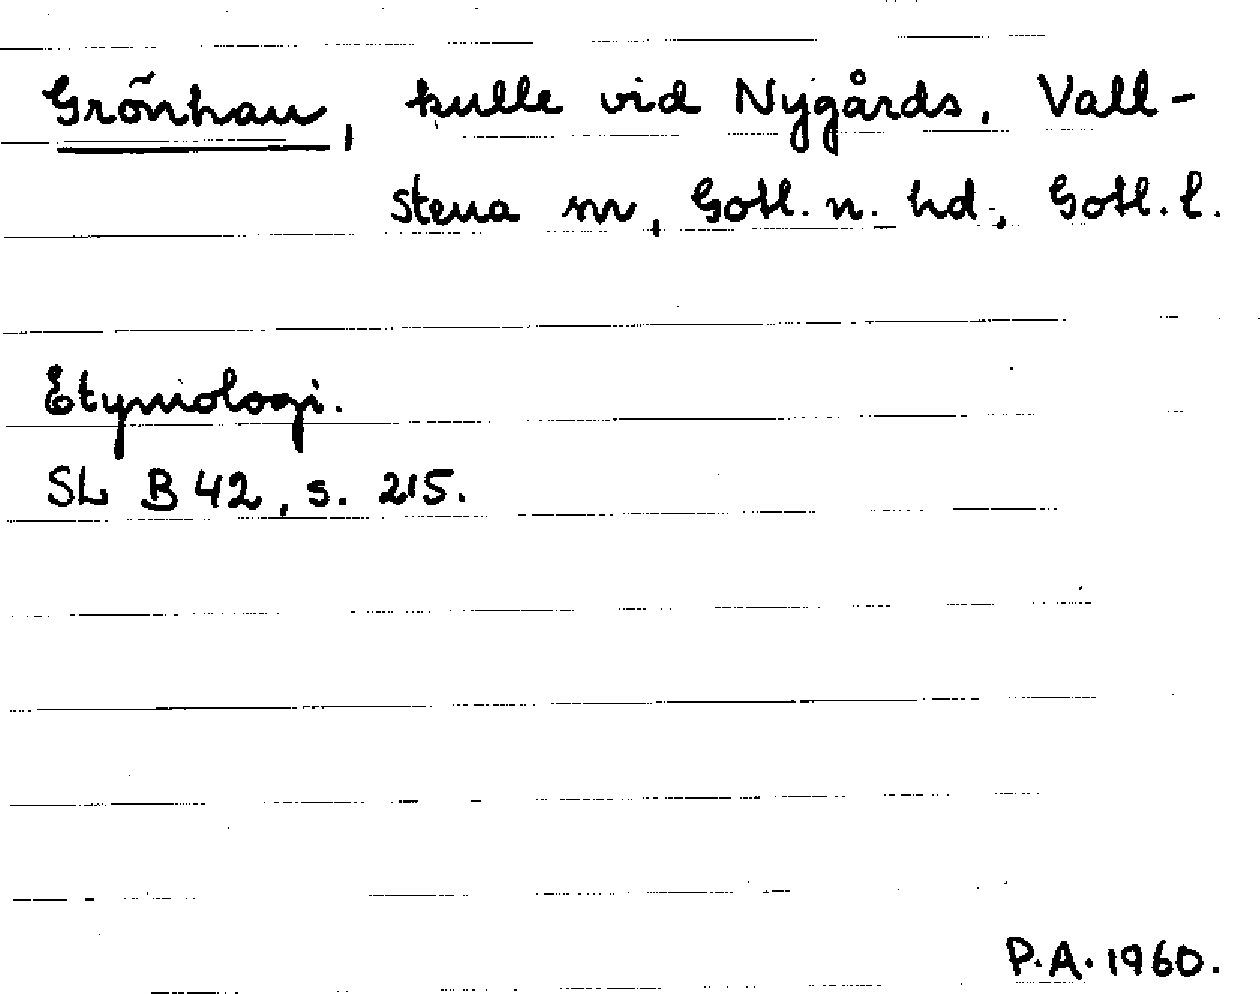 Grönhau, kulle vid Nygårds, Vall-
stena sn, Gotl. n. hd., Gotl. l.
Etymologi.
SL B 42, s. 215.
P.A. 1960.